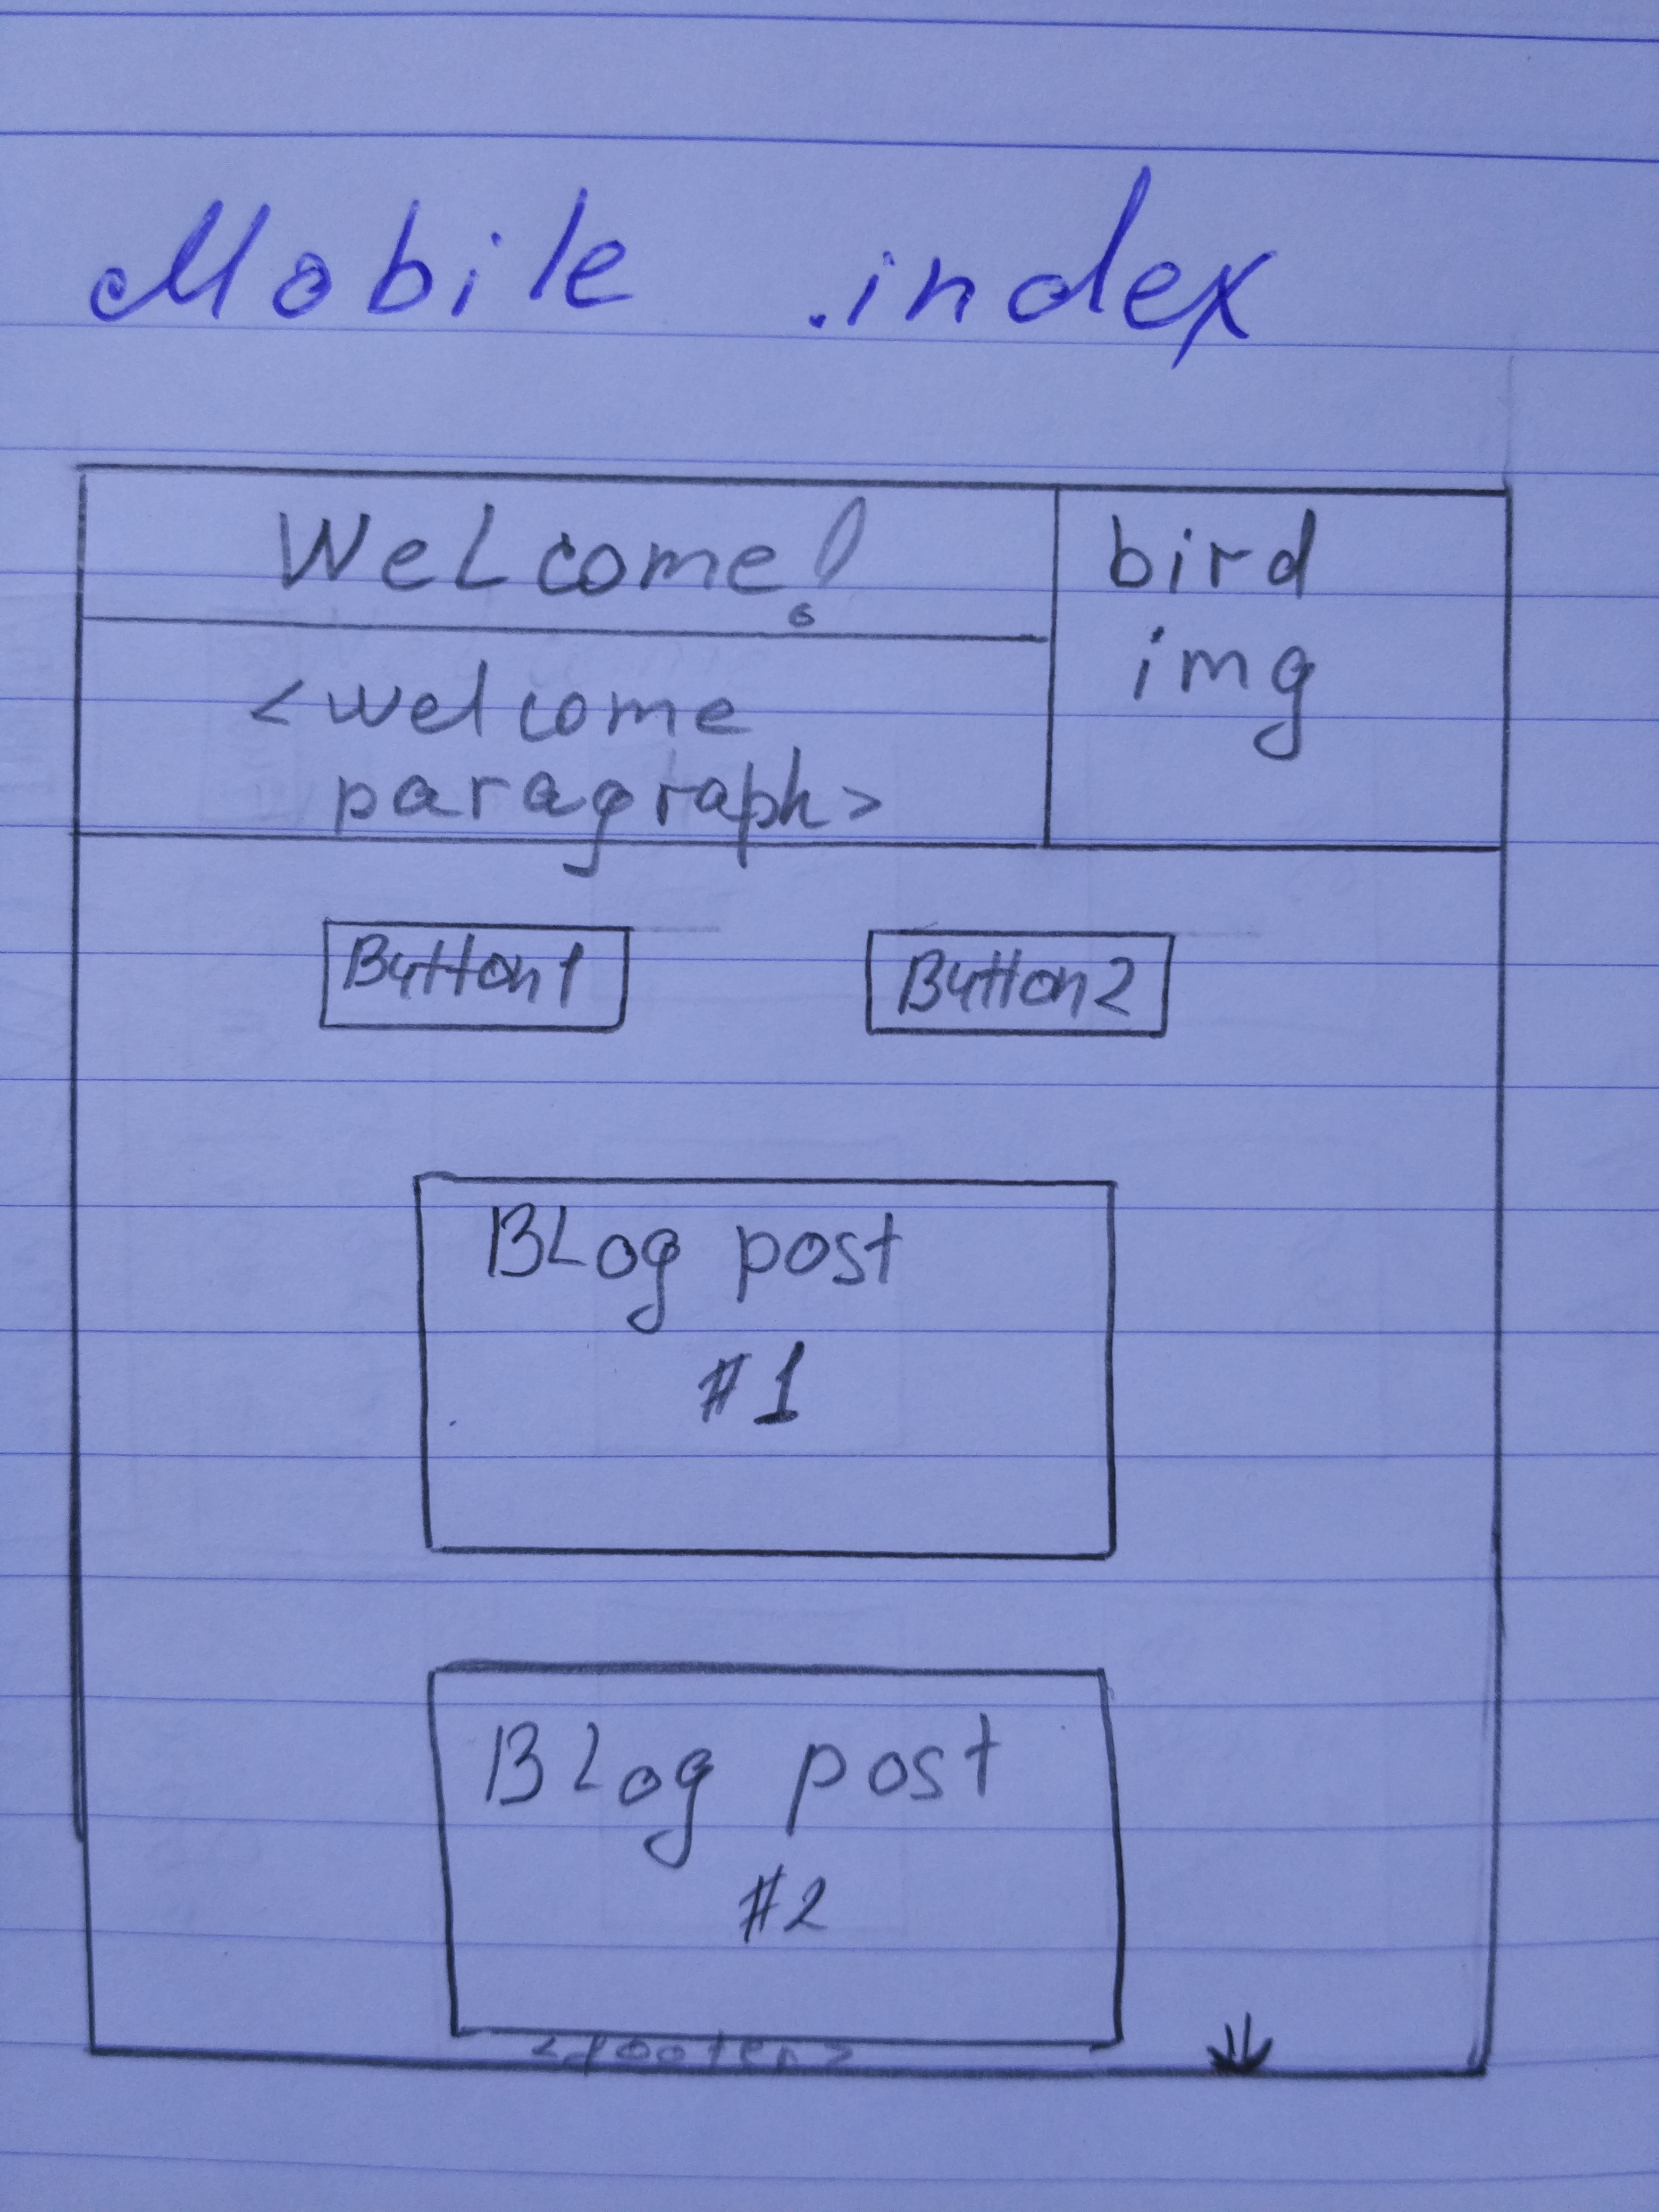 Mobile .index
WeLcome!
bird
img
<welcome
paragraph>
Button1
Button2
BLog post
#1
BLog post
#2
<footer>